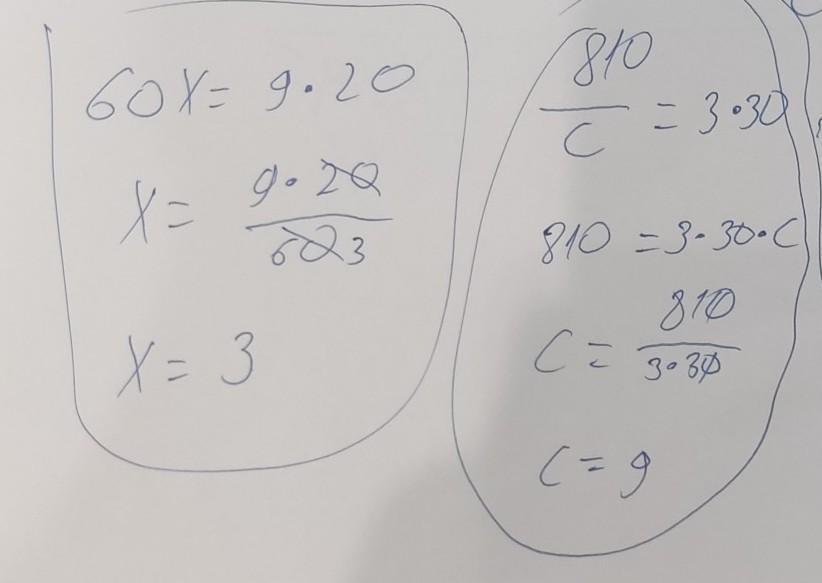 60X = 9·20
X = 9·20 / 60 3
X = 3
810 / C = 3·30
810 = 3·30·C
C = 810 / 3·30
C = 9